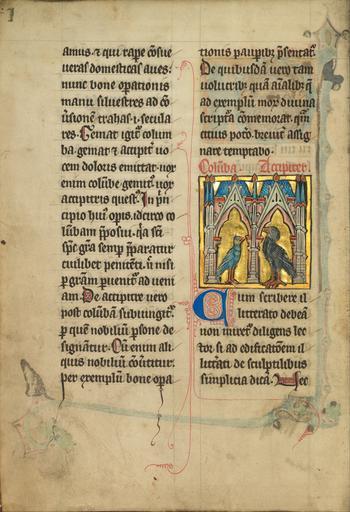 amus. ⁊ qui rape cõsue
ueras domesticas aues:
nunc bone opationis
manu siluestres ad cõ
ũsionem trahas .i. secula
res. Gemat igit᷑ colum
ba. gemat ⁊ accipit᷑ uo
cem doloris emittat. uox
enim colũbe gemit᷑. uox
accipitris quest᷑. In pᷓn
cipio hui᷑ opis. idcirco co
lũbam p̃posui. qa sc̃i
sp̃c gr̃a semp p̃paratur
cuilibet penitenti. ũ nisi
p gr̃am puenit᷑ ad ueni
am. De accipitre uero
post colũbam subiungit᷑.
p quẽ nobiliũ psone de
signãtur. Cũ enim ali
quis nobiliũ cõũtitur.
per exemplũ bone opa
tionis paupib᷑ p̃sentat᷑.
De quibusdã uero tam
uolucrib᷑ quã aĩalib᷑ q̃
ad exemplũ mor̃ diuina
scriptã comemorat. qm̃
citius poto. breuit᷑ assig
nare temptabo.
Colũba Accipiter
Cum scribere il
litterato debeã
non miret᷑ diligens lec
tor. si ad edificatõem il
litt̃ati. de sculptilibus
simplicia dicã. Nec